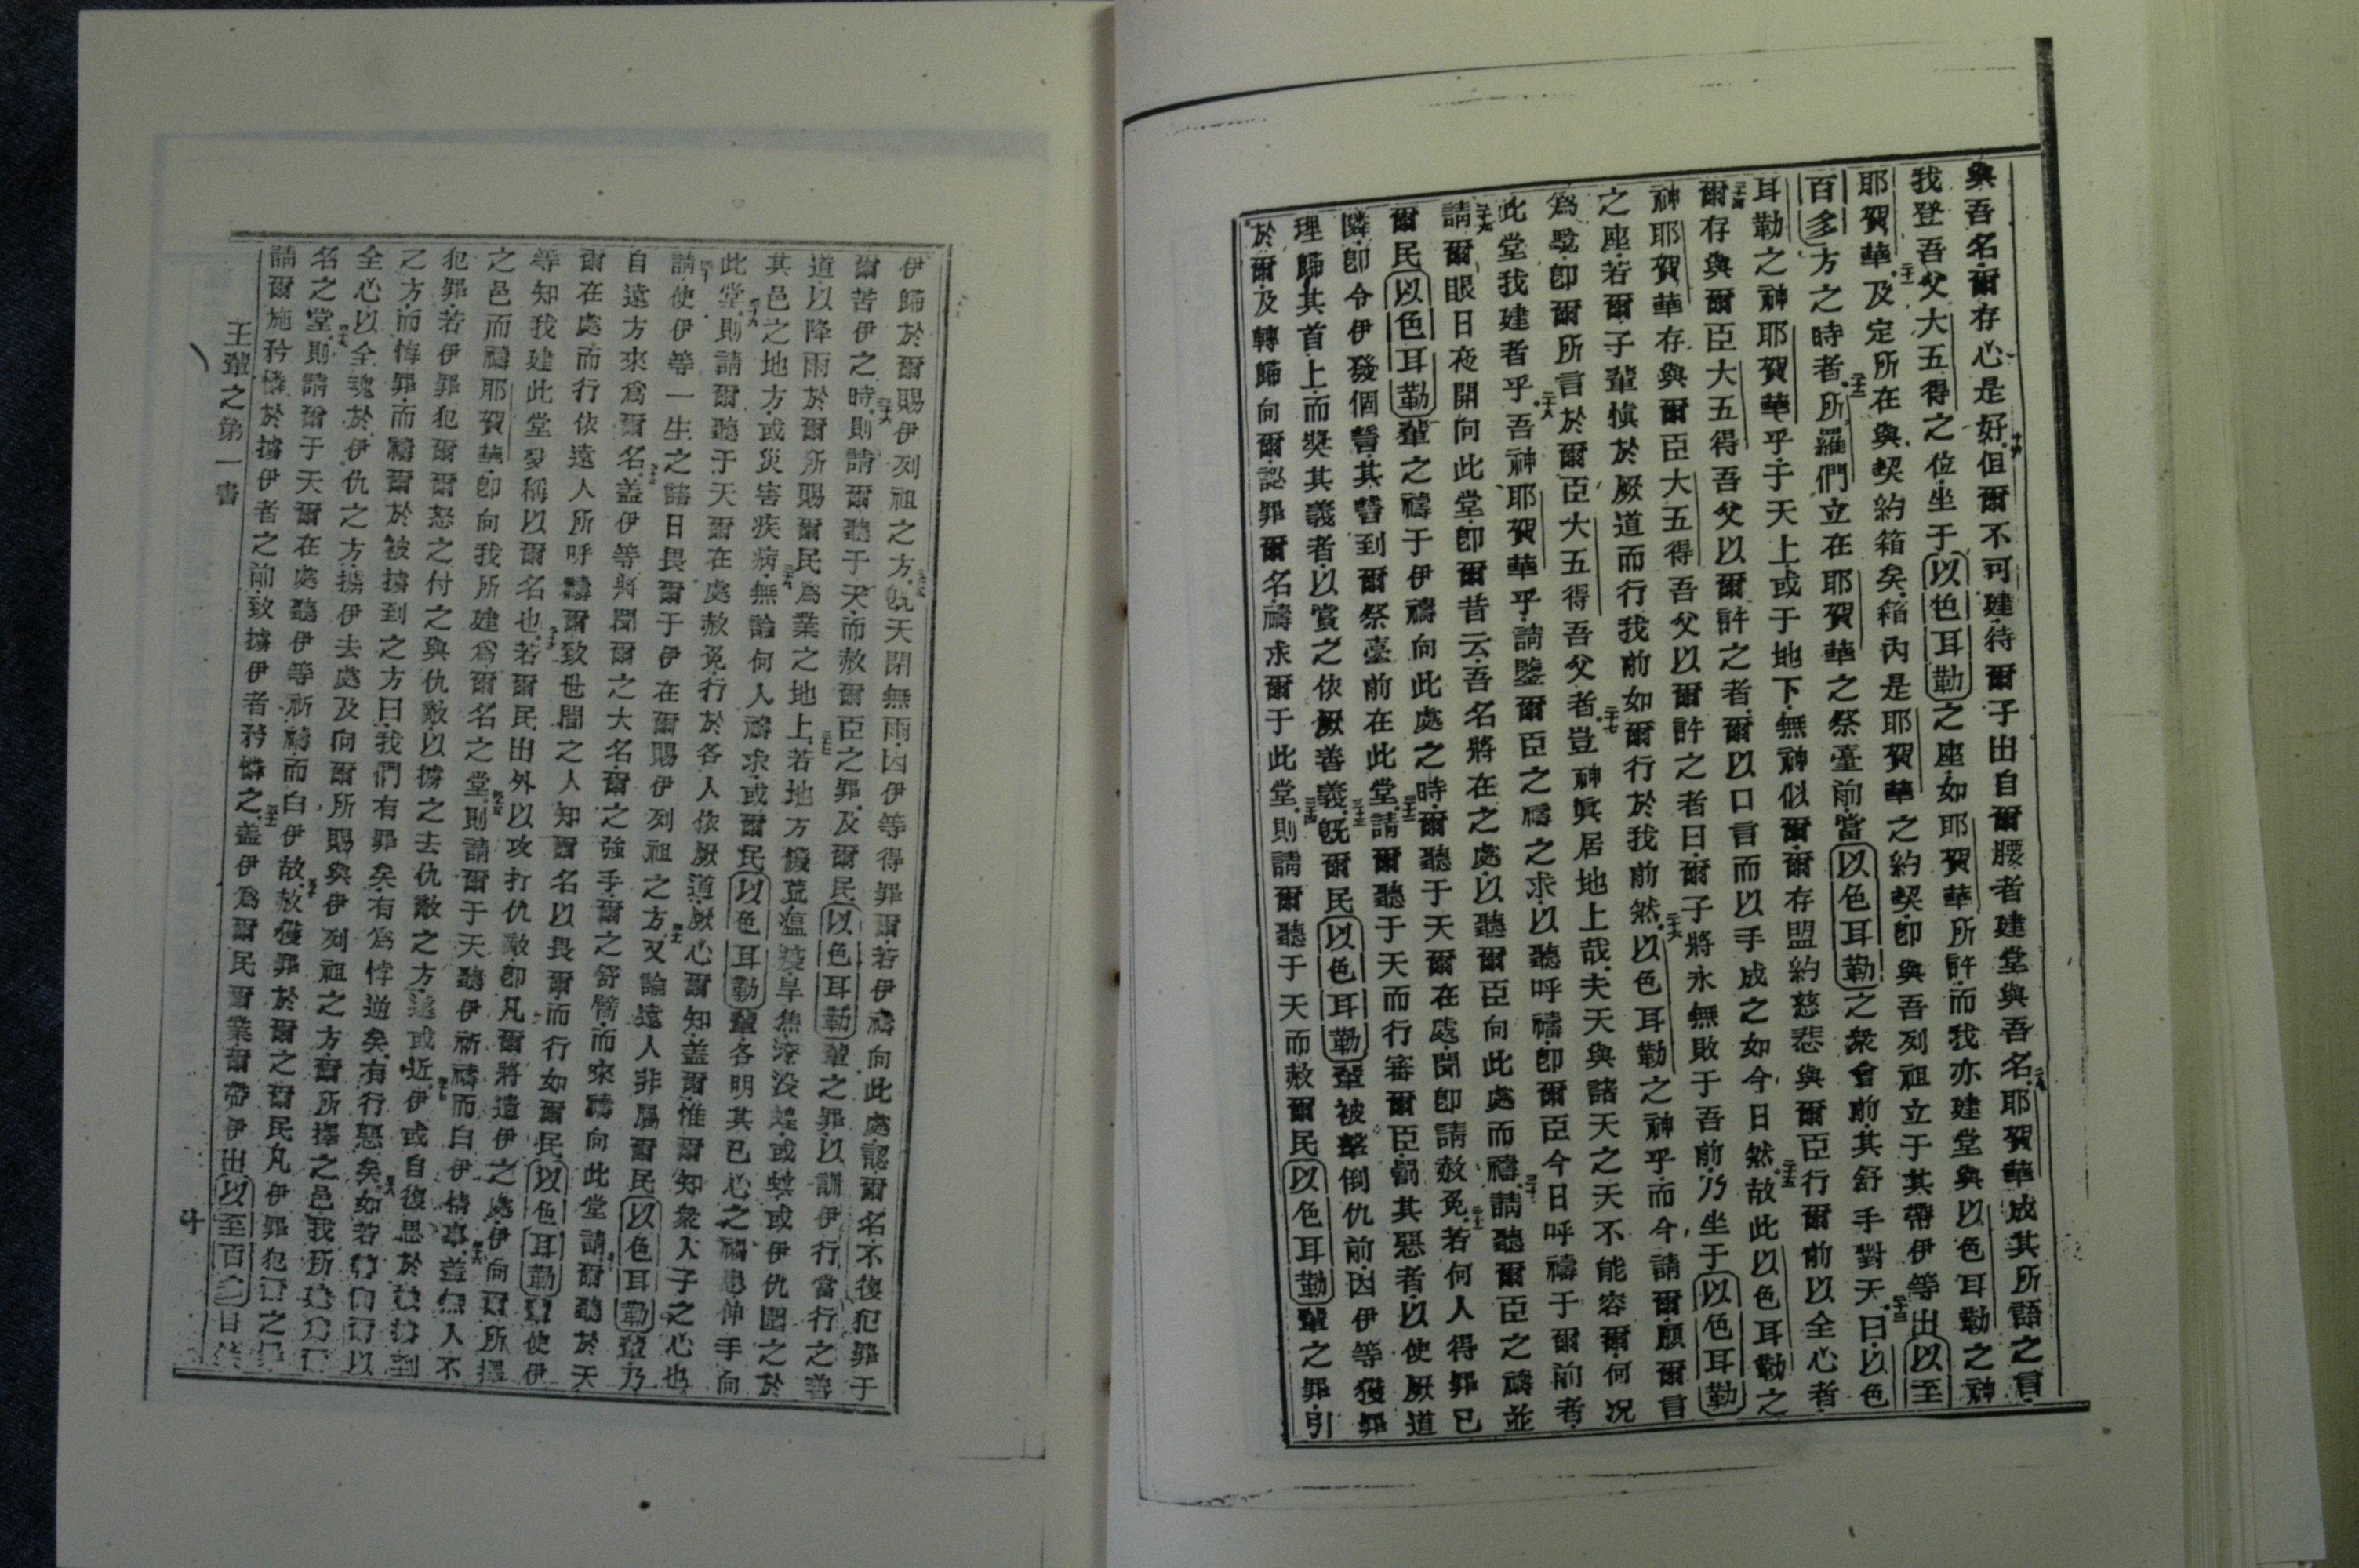 與吾名爾存心是好十九但爾不可建待爾子出自爾腰者建堂與吾名二十耶賀華成其所語之言
我登吾父大五得之位坐于以色耳勒之座如耶賀華所許而我亦建堂與以色耳勒之神
耶賀華二十一及定所在與契約箱矣箱內是耶賀華之約契卽與吾列祖立于其帶伊等出以至
百多方之時者二十二所羅們立在耶賀華之祭臺前當以色耳勒之衆會前其舒手對天二十三曰以色
耳勒之神耶賀華乎于天上或于地下無神似爾爾存盟約慈悲與爾臣行爾前以全心者
二十四爾存與爾臣大五得吾父以爾許之者爾以口言而以手成之如今日然二十五故此以色耳勒之
神耶賀華存與爾臣大五得吾父以爾許之者曰爾子將永無敗于吾前乃坐于以色耳勒
之座若爾子輩愼於厥道而行我前如爾行於我前然二十六以色耳勒之神乎而今請爾願爾言
爲騐卽爾所言於爾臣大五得吾父者二十七豈神眞居地上哉夫天與諸天之天不能容爾何况
此堂我建者乎二十八吾神耶賀華乎請鑒爾臣之禱之求以聽呼禱卽爾臣今日呼禱于爾前者
二十九請爾眼日夜開向此堂卽爾昔云吾名將在之處以聽爾臣向此處而禱三十請聽爾臣之禱並
爾民以色耳勒輩之禱于伊禱向此處之時爾聽于天爾在處聞卽請赦免三十一若何人得罪已
隣卽令伊發個誓其誓到爾祭臺前在此堂三十二請爾聽于天而行審爾臣罰其惡者以使厥道
理歸其首上而奬其義者以賞之依厥善義三十三旣爾民以色耳勒輩被擊倒仇前因伊等獲罪
於爾及轉歸向爾認罪爾名禱求爾于此堂三十四則請爾聽于天而赦爾民以色耳勒輩之罪引
伊歸於爾賜伊列祖之方三十五旣天閉無雨因伊等得罪爾若伊禱向此處認爾名不復犯罪于
爾苦伊之時三十六則請爾聽于天而赦爾臣之罪及爾民以色耳勒輩之罪以訓伊行當行之善
道以降雨於爾所賜爾民爲業之地上三十七若地方饑荒瘟疫旱焦滛没蝗或蚊或伊仇圍之於
其邑之地方或災害疾病三十八無論何人禱求或爾民以色耳勒輩各明其已心之禍患伸手向
此堂三十九則請爾聽于天爾在處赦免行於各人依厥道厥心爾知蓋爾惟爾知衆人子之心也
四十請使伊等一生之諸日畏爾于伊在爾賜伊列祖之方四十一又論遠人非屬爾民以色耳勒輩乃
自遠方來爲爾名四十二蓋伊等將聞爾之大名爾之強手爾之舒臂而來禱向此堂四十三請爾聽於天
爾在處而行依遠人所呼禱爾致世間之人知爾名以畏爾而行如爾民以色耳勒輩使伊
等知我建此堂發稱以爾名也四十四若爾民出外以攻打仇敵卽凡爾將遣伊之處伊向爾所擇
之邑而禱耶賀華卽向我所建爲爾名之堂四十五則請爾于天聽伊祈禱而白伊情事四十六蓋無人不
犯罪若伊罪犯爾爾怒之付之與仇敵以擄之去仇敵之方遠或近四十七伊或自復思於被擄到
之方而悔罪而禱爾於被擄到之方曰我們有罪矣有爲悖逆矣有行惡矣四十八如若歸向爾以
全心以全魂於伊仇之方擄伊去處及向爾所賜與伊列祖之方爾所擇之邑我所建爾
名之堂四十九則請爾于天爾在處聽伊等祈禱而白伊故五十赦獲罪於爾之爾民凡伊罪犯爾之罪
請爾施矜憐於擄伊者之前致擄伊者矜憐之五十一蓋伊爲爾民爾業爾帶伊出以至百多自
王輩之第一書